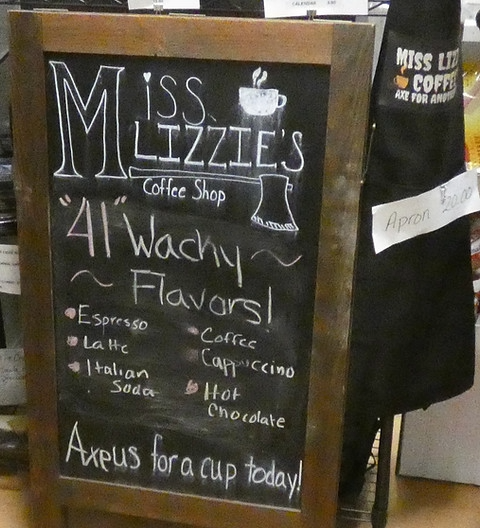 Miss
Lizzie's
Coffee Shop
"41" Wacky
~ Flavors! ~
Espresso
Latte
Italian
Soda
Coffee
Cappuccino
Hot
Chocolate
Axe us for a cup today!
MISS LIZ
COFFE
AXE FOR ANOT
Apron 20.00